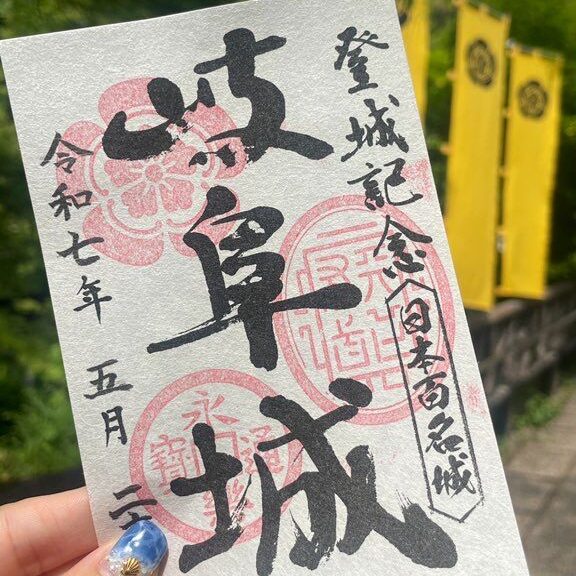 登城記念
日本百名城
岐阜城
令和七年 五月 二
永楽通寳